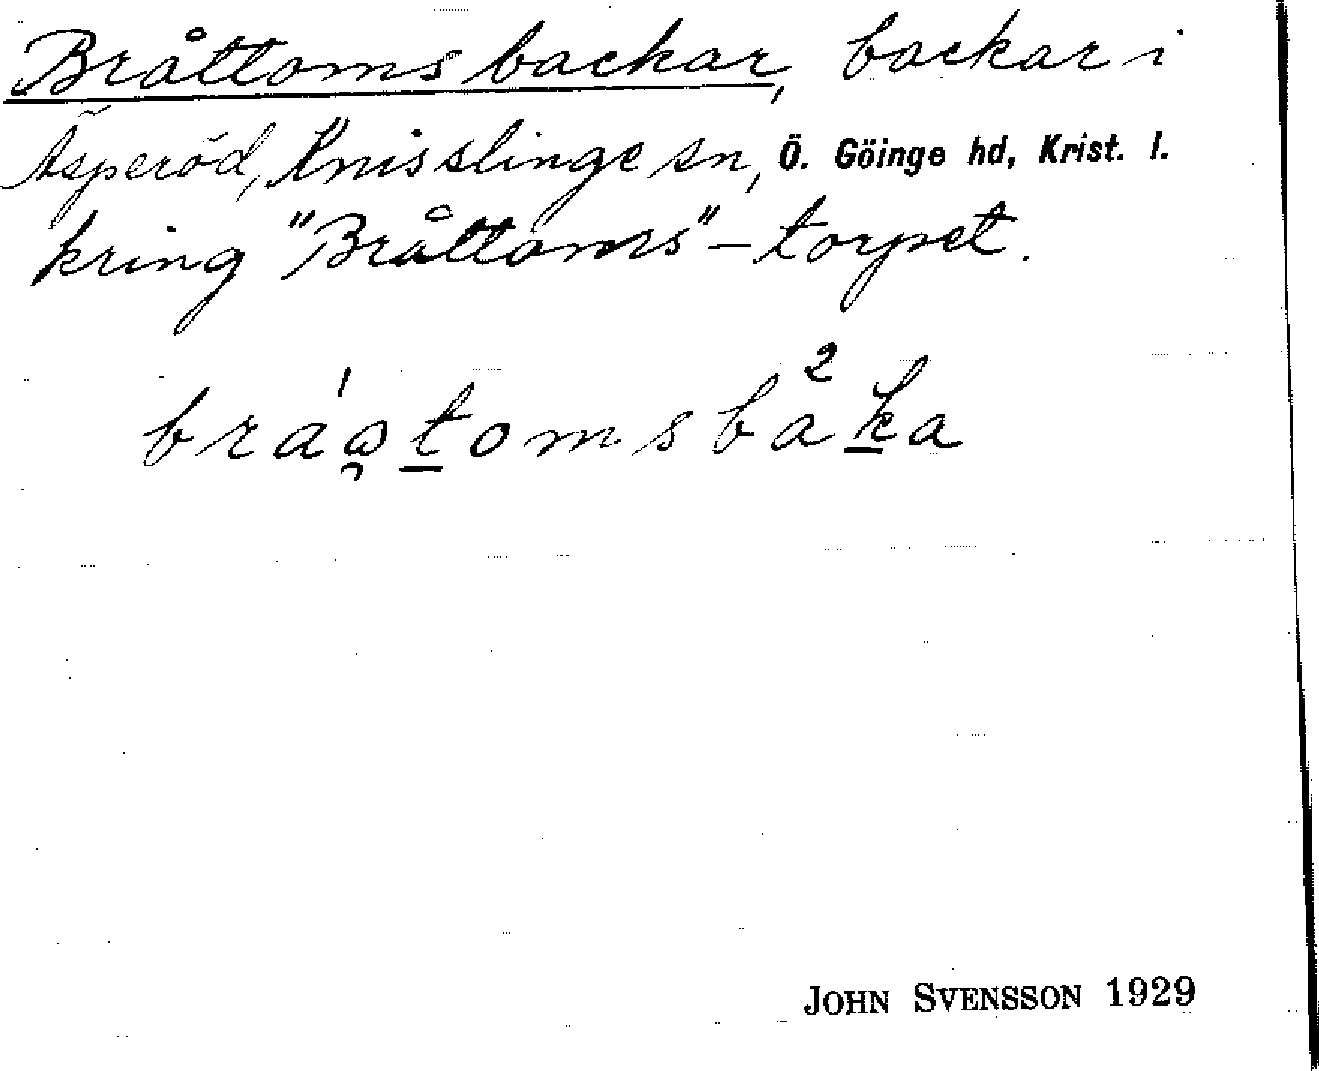 Bråttoms backar, backar i
Äsperöd, Knisslinge sn, Ö. Göinge hd, Krist. l.
kring "Bråttoms"-torpet.
JOHN SVENSSON 1929